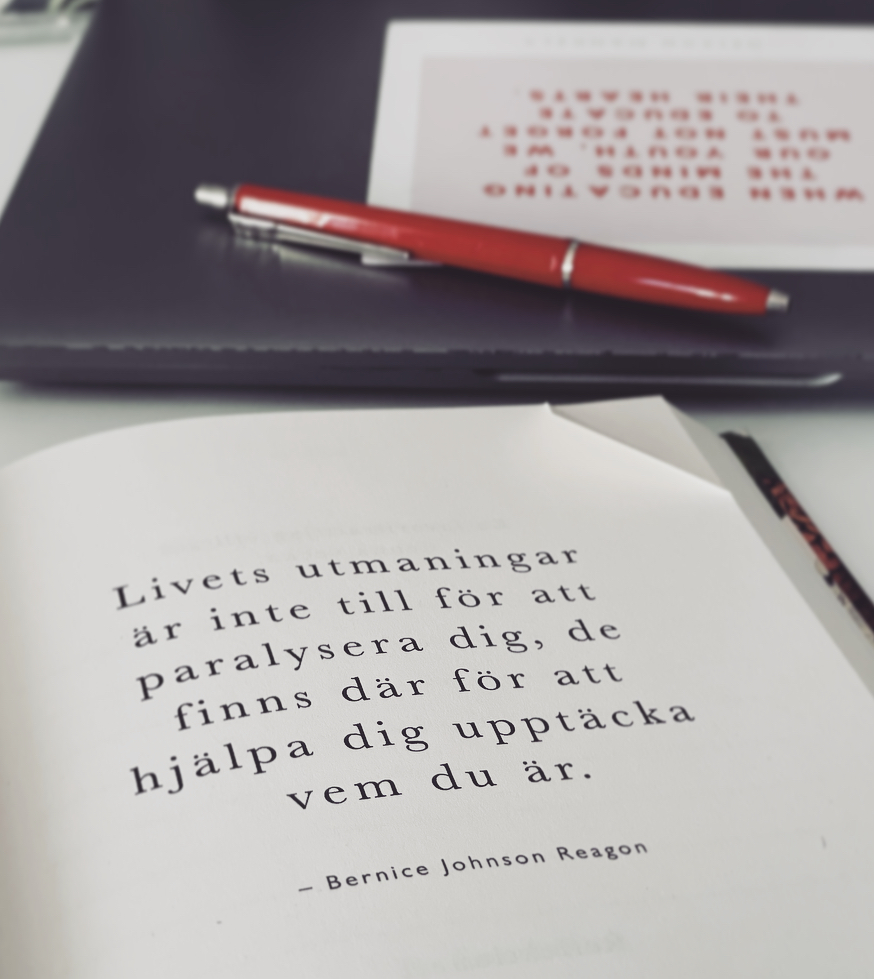 WHEN EDUCATING
THE MINDS OF
OUR YOUTH, WE
MUST NOT FORGET
TO EDUCATE
THEIR HEARTS
Livets utmaningar
är inte till för att
paralysera dig, de
finns där för att
hjälpa dig upptäcka
vem du är.
– Bernice Johnson Reagon